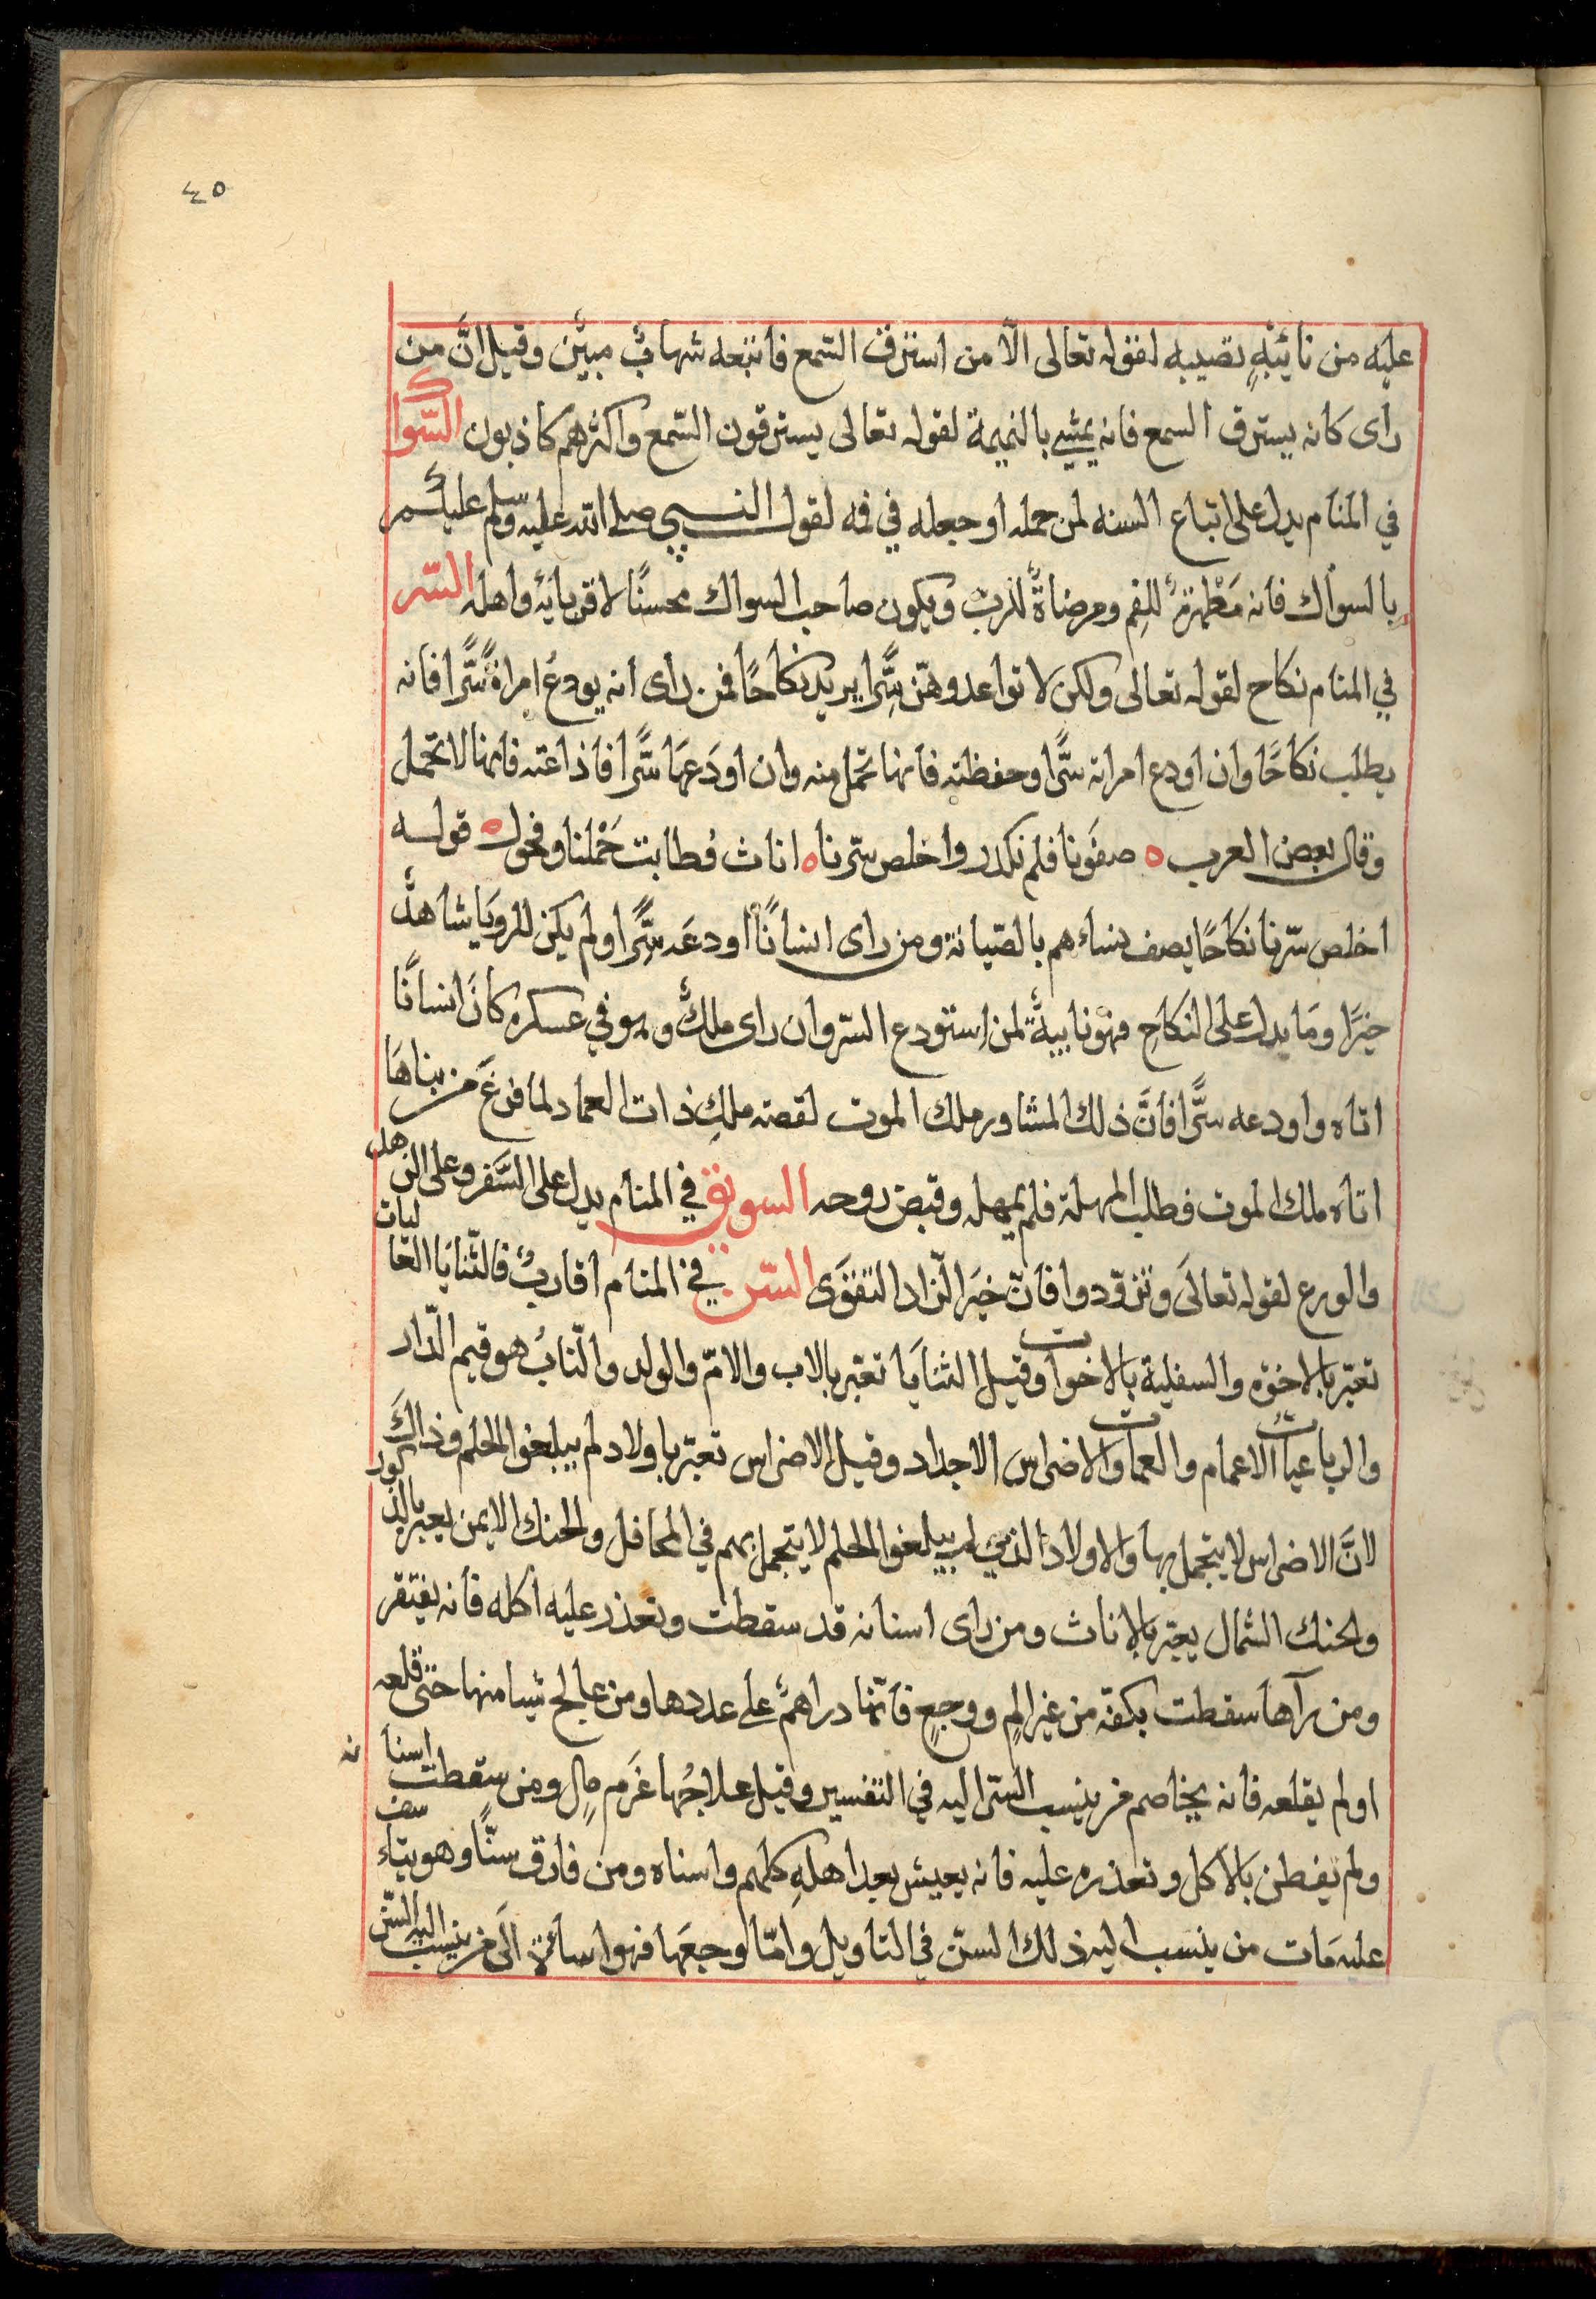 ٤٥
عليه من نائبةٍ تصيبه لقوله تعالى الّا من استرق السّمع فاتبعه شهابٌ مبينٌ وقيل انَّ من
راى كانه يسترق السمع فانه يمشي بالنميمة لقوله تعالى يسترقون السّمع واكثرهم كاذبون السّواك
في المنام يدل على اتباع السنه لمن حمله او جعله في فمه لقول النبي صلى الله عليه وسلم عليكم
بالسواك فانه مَطْهرةٌ للفم ومرضاةٌ للربّ ويكون صاحب السواك محسنًا لاقربائه واهله السّر
في المنام نكاح لقوله تعالى ولكن لا تواعدوهنّ سِرًّا يريد نكاحًا فمن رأى أنه يودعُ امراةً سرًّا فانه
يطلب نكاحًا وان اودع امراته سرًّا وحفظته فانها تحمل منه وان اودَعهَا سرًّا فاذاعته فانها لا تحمل
وقال بعض العرب ه صفَونا فلم نكدر واخلص سرّنا ه اناث فطابت حَمْلنا وفحول ه قوله
اخلص سرّنا نكاحًا يصف نساءهم بالصّيانة ومن راى انسانًا اودعَه سِرًّا ولم يكن للرويا شاهدٌ
خيرًا ومَا يدل على النكاحِ فهو نايبةٌ لمن استودع السّر وان راى ملكٌ وهو في عسكره كانَ انسانًا
اتاه واودعه سرًّا فانَّ ذلك المشاور ملك الموت لقصته ملكِ ذات العماد لما فرغَ من بناهَا
اتاه ملك الموت فطلب المهلة فلم يمهله وقبض روحه السويق في المنام يدل على السَّفر وعلى الزهد
والورع لقوله تعالىَ وتزوّدوا فانّ خيَر الزّاد التقوَى السّن في المنام اقاربُ فالثّنايَا العَاليات
تعبّر بالاخوّه والسفلية بالاخوات وقيل الثنايَا تعبّر بالاب والامّ والولد والنّابُ هو قيم الدّار
والرباعيات الاعمام والعمات والاضراس الاجداد وقيل الاضراس تعبّر باولاد لم يبلغوا الحلم وذالكَ
لانَّ الاضراس لا يتجمل بها والاولاد الذين لم يبلغوا الحلم لا يتجمل بهم في المحافل والحنك الايمن يعبر بالذكور
والحنك الشمال يعبّر بالاناث ومن راى اسنانه قد سقطت وتعذر عليه اكله فانه يفتقر
ومن رآها سقطت بكفه من غير المٍ ووجعٍ فانّها دراهمٌ على عددها ومن عالج شيا منها حتى قلعه
اولم يقلعه فانه يخاصم من ينسب السّن اليه في التفسير وقيل علاجُها غَرم مالٍ ومن سقطت اسنانه
ولم يفطن بالاكل وتعذره عليه فانه يعيش بعد اهلهِ كلهم واسناه ومن فارق سنًّا وهو يتاسف
عليه مَات من ينسب اليه ذلك السنّ في التاويل وامّا لوجعَها فهو اسأةٌ الَى من ينسب اليه السّن